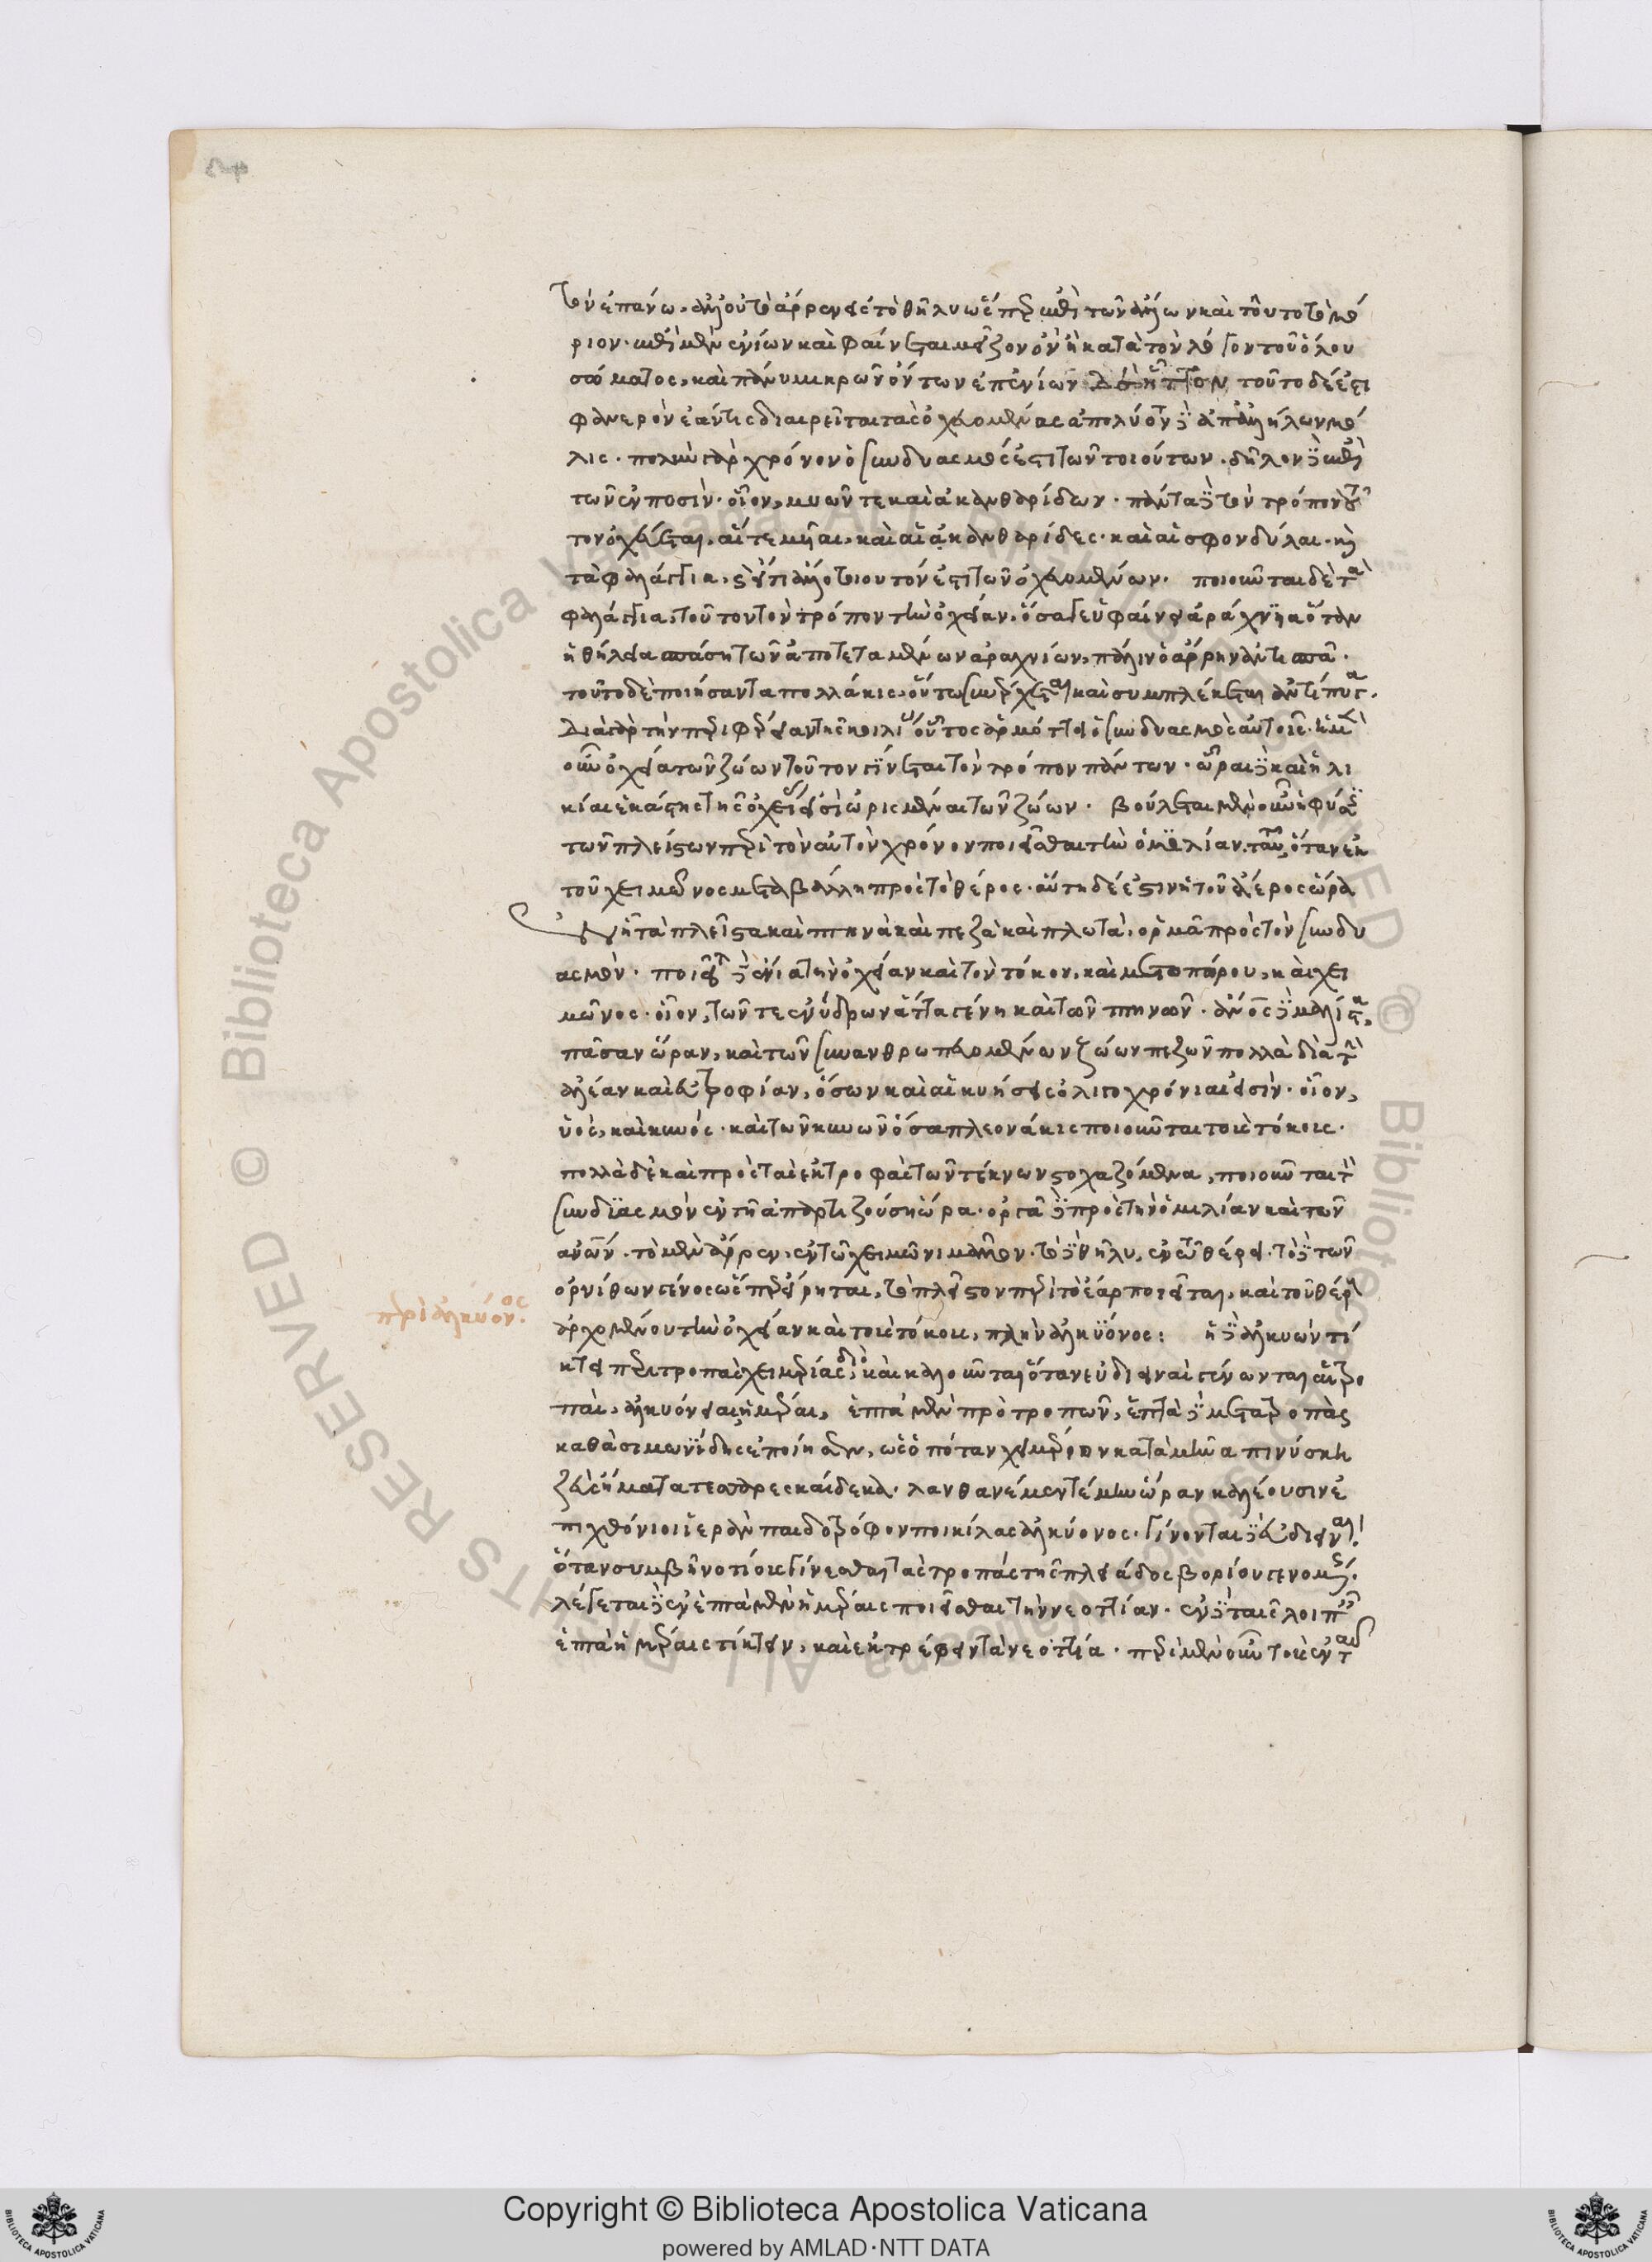 τὸν ἐπάνω, ἀλλ' οὐ τὸ ἄρρεν εἰς τὸ θῆλυ ὥσπερ ἐπὶ τῶν ἄλλων καὶ τοῦτο τὸ μό
ριον· ἐπὶ μὲν ἐνίων καὶ φαίνεται μεῖζον ὂν ἢ κατὰ τὸν λόγον τοῦ ὅλου
σώματος, καὶ πάνυ μικρῶν ὄντων ἐπ' ἐνίων ἧττον τοῦτο δέ ἐστι
φανερὸν ἐάν τις διαιρεῖ τὰς ὀχευομένας ἀπολύονται δ' ἀπ' ἀλλήλων μό
λις· πολὺν γὰρ χρόνον ὁ συνδυασμός ἐστι τῶν τοιούτων· δῆλον δ' ἐπὶ
τῶν ἐν ποσίν· οἷον, μυῶν τε καὶ ἀκανθαρίδων· πάντα δὲ τὸν τρόπον τοῦ
τον ὀχεύεται, αἵ τε μυῖαι, καὶ αἱ ἀκανθαρίδες· καὶ αἱ σφονδύλαι· καὶ
τὰ φαλάγγια, εἴ τι ἀλλ' τοιοῦτόν ἐστι τῶν ὀχευομένων. ποιοῦνται δὲ τὰ
φαλάγγια, τοῦτον τὸν τρόπον τὴν ὀχείαν, ὅσα γε ὑφαίνει ἀράχνϊα ὅταν
ἡ θήλεια σπάση τῶν ἀποτεταμένων ἀραχνίων, πάλιν ὁ ἄρρην ἀντισπᾶ·
τοῦτο δὲ ποιήσαντα πολλάκις, οὕτω συνέρχεται καὶ συμπλέκεται ἀντίπυγα·
διὰ γὰρ τὴν περιφέρειαν τῆς κοιλίας οὗτος ἁρμόττει ὁ συνδυασμὸς αὐτοῖς· ἡ μὲν
οὖν ὀχεία τῶν ζώων τοῦτον γίνεται τὸν τρόπον πάντων· ὧραι δὲ καὶ ἡλι
κίαι ἑκάστης τῆς ὀχείας εἰσὶ ὡρισμέναι τῶν ζώων· βούλεται μὲν οὖν ἡ φύσις
τῶν πλείστων περὶ τὸν αὐτὸν χρόνον ποιεῖσθαι τὴν ὁμιλίαν ταύτην, ὅταν ἐκ
τοῦ χειμῶνος μεταβάλλη πρὸς τὸ θέρος· αὕτη δέ ἐστιν ἡ τοῦ ἀέρος ὥρα
ἐν ἧ τὰ πλεῖστα καὶ πτηνὰ καὶ πεζὰ καὶ πλωτὰ, ὁρμᾶ πρὸς τὸν συνδυ
ασμόν· ποιεῖται δ' ἔνια τὴν ὀχείαν καὶ τὸν τόκον, καὶ μετοπώρου, καὶ χει
μῶνος· οἷον, τῶν τε ἐνύδρων ἄττα γένη καὶ τῶν πτηνῶν· ἄνθρωπος δὲ μάλιστα,
πᾶσαν ὥραν, καὶ τῶν συνανθρωπευομένων ζώων πεζῶν πολλὰ διὰ τὴν
ἀλέαν καὶ εὐτροφίαν, ὅσων καὶ αἱ κυήσεις ὀλιγοχρόνιαι εἰσίν· οἷον,
ὑὸς, καὶ κυνός· καὶ τῶν κυνῶν ὅσα πλεονάκις ποιοῦνται τοὺς τόκους·
πολλὰ δὲ καὶ πρὸς τὰς ἐκτροφὰς τῶν τέκνων στοχαζόμενα, ποιοῦνται τὸν
συνδϊασμὸν ἐν τῆ ἀπαρτιζούση ὥρα· ὀργᾶ δὲ πρὸς τὴν ὁμιλίαν καὶ τῶν
ἀνθρώπων· τὸ μὲν ἄρρεν, ἐν τῶ χειμῶνι μᾶλλον· τὸ δὲ θῆλυ, ἐν τῶ θέρει· τὸ δὲ τῶν
ὀρνίθων γένος ὥσπερ εἴρηται, τὸ πλεῖστον περὶ τὸ ἔαρ ποιεῖται, καὶ τοῦ θέρους
ἀρχομένου τὴν ὀχείαν καὶ τοὺς τόκους, πλὴν ἀλκϋόνος: ἡ δ' ἀλκυὼν τί
κτει περὶ τροπὰς χειμερίας διὸ καὶ καλοῦνται ὅταν εὐδιειναὶ γένωνται αἱ τρο
παὶ, ἀλκυόνειαι ἡμέραι, ἑπτὰ μὲν πρὸ τροπῶν, ἑπτὰ δὲ μετὰ τροπὰς
καθὰ σιμωνίδης ἐποίησεν, ὡς ὁπόταν χειμέριον κατὰ μῆνα πινύσκη
ζεὺς ἤματα τεσσαρεσκαίδεκα· λανθανέμεν τέ μιν ὥραν καλέουσιν ἐ
πιχθόνιοι ἱερὰν παιδοτρόφον ποικίλας ἀλκυόνος· γίνονται δ' εὐδιειναὶ
ὅταν συμβῆ νοτίους γίνεσθαι τὰς τροπάς τῆς πλειάδος βορίου γενομένης·
λέγεται δ' ἐν ἑπτὰ μὲν ἡμέραις ποιεῖσθαι τὴν νεοττίαν· ἐν δὲ ταῖς λοιπαῖς
ἑπτὰ ἡμέραις τίκτειν, καὶ ἐκτρέφειν τὰ νεόττια· περὶ μὲν οὖν τοὺς ἐνταῦ
περὶ ἀλκυόνος.
Copyright © Biblioteca Apostolica Vaticana
powered by AMLAD·NTT DATA